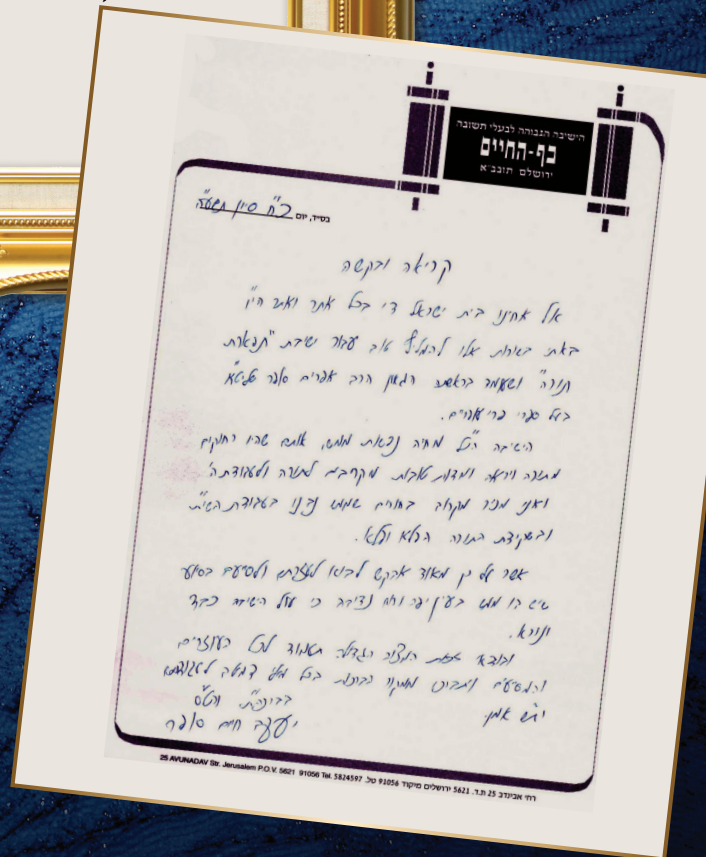 הישיבה הגבוהה לבעלי תשובה
כף-החיים
ירושלים תובב"א
בס"ד, יום כ"ח סיון תשע"ה
קריאה ובקשה
אל אחינו בית ישראל די בכל אתר ואתר הי"ו
באתי באורות אלו להמליץ טוב עבור ישיבת "תפארת
תורה" שעומד בראשה הגאון הרב אפרים סופר שליט"א
בעל ספרי פרי אפרים.
הישיבה הנ"ל מחיה נפשות ממש, אותם שהיו רחוקים
מתורה ויראה ומדות טובות מקרבים לתורה ולעבודת ה'
ואני מכיר מקרוב בחורים שממש נבנו בעבודת השי"ת
ובשקידת התורה הפלא ופלא.
אשר על כן מאוד אבקש לבוא לעזרתם ולסייעם בסיוע
שיש בו ממש בעין יפה ורוח נדיבה כי עול הישיבה כבד
ונורא.
ובודאי שזאת המצוה הגדולה תעמוד לכל העוזרים
והמסייעים ויתברכו ממקור הברכות בכל מילי דמטב
יר"ש אמן
בברכת והט"ס
יעקב חיים סופר
25 AVUNADAV Str. Jerusalem P.O.V. 5621 91056 Tel. 5824597 רח' אבינדב 25 ת.ד. 5621 ירושלים מיקוד 91056 טל.